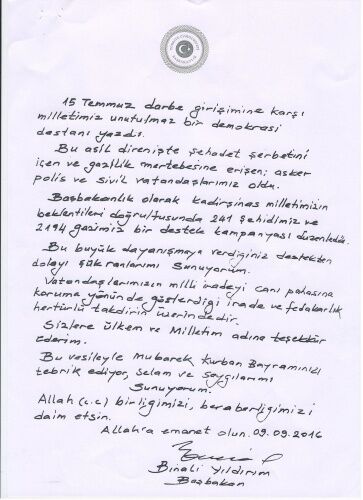 15 Temmuz darbe girişimine karşı
milletimiz unutulmaz bir demokrasi
destanı yazdı.
Bu asil direnişte şehadet şerbetini
içen ve gazilik mertebesine erişen; asker
polis ve sivil vatandaşlarımız oldu.
Başbakanlık olarak kadirşinas milletimizin
beklentileri doğrultusunda 241 şehidimiz ve
2194 gazimiz bir destek kampanyası düzenledik.
Bu büyük dayanışmaya verdiğiniz destekten
dolayı şükranlarımı sunuyorum.
Vatandaşlarımızın milli iradeyi canı pahasına
koruma yönünde gösterdiği irade ve fedakarlık
hertürlü takdirin üzerindedir.
Sizlere ülkem ve Milletim adına teşekkür
ederim.
Bu vesileyle Mubarek Kurban Bayramınızı
tebrik ediyor, selam ve saygılarımı
Sunuyorum.
Allah (c.c) birliğimizi, beraberliğimizi
daim etsin.
Allah'a emanet olun. 09.09.2016
Binali Yıldırım
Başbakan